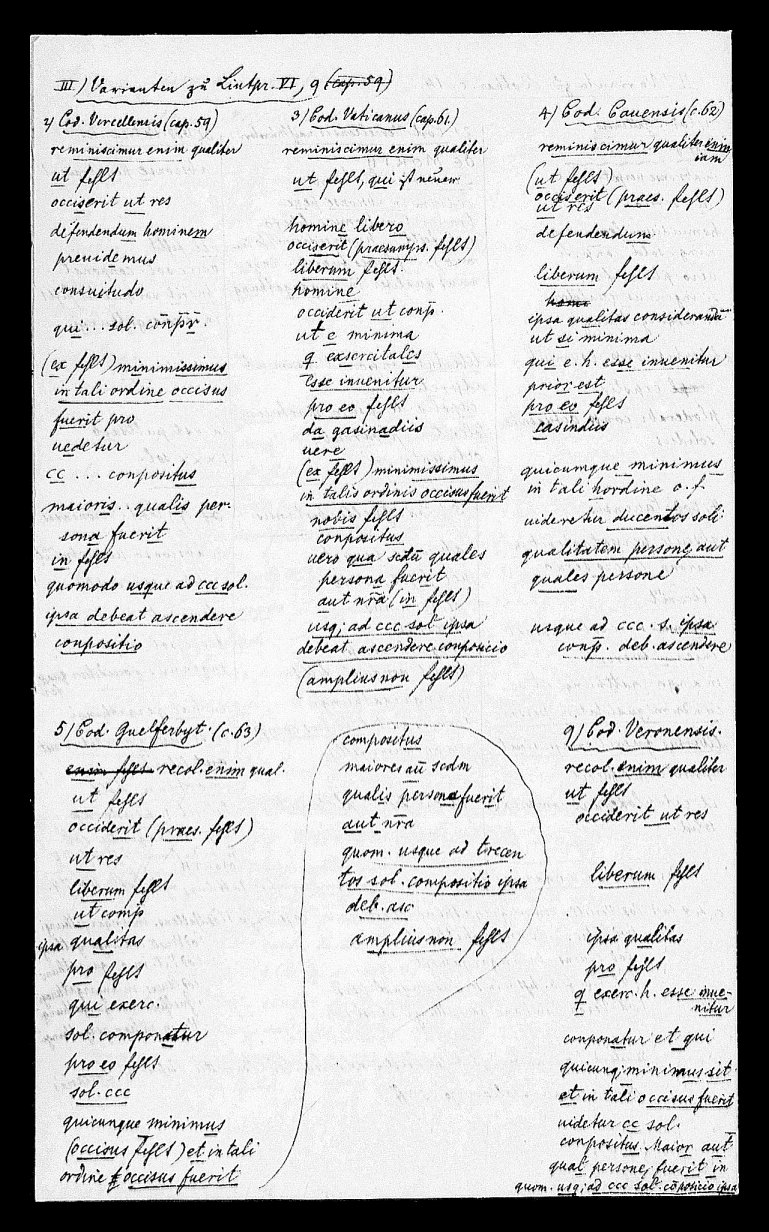 III) Varianten zu Liutpr. VI, 9 (cap. 59)
2) Cod. Vercellensis (cap. 59)
reminiscimur enim qualiter
ut fehlt
occiserit ut res
defendendum hominem
preuidemus
consuitudo
qui... sol. conpr.
(ex fehlt) minimissimus
in tali ordine occisus
fuerit pro
uedetur
cc ... conpositus
maioris.. qualis per-
sona fuerit
in fehlt
quomodo usque ad ccc sol.
ipsa debeat ascendere
conpositio
3) Cod. Vaticanus (cap. 61)
reminiscimur enim qualiter
ut fehlt, qui ist neuer
homine libero
occiserit (praesumps. fehlt)
liberum fehlt.
homine
occiderit ut conp.
ut e minima
q exsercitales
esse inuenitur
pro eo fehlt
da gasinadiis
uere
(ex fehlt) minimissimus
in talis ordinis occisus fuerit
nobis fehlt
conpositus
uero qua scdm quales
persona fuerit
aut nra (in fehlt)
usq; ad ccc sol ipsa
debeat ascendere conposicio
(amplius non fehlt)
4) Cod. Cauensis (c. 62)
reminiscimur qualiter enim
iam
(ut fehlt)
occiserit (praes. fehlt)
ut res
defendendum
liberum fehlt
homi
ipsa qualitas consideranda
ut si minima
qui e. h. esse inuenitur
prior est
pro eo fehlt
casindiis
quicumque minimus
in tali hordine o. f.
uideretur ducentos soli
qualitatem persone aut
quales persone
usque ad ccc. s. ipsa
conp. deb. ascendere
5) Cod. Guelferbyt. (c. 63)
enim fehlt recol. enim qual.
ut fehlt
occiderit (praes. fehlt)
ut res
liberum fehlt
ut comp
ipsa qualitas
pro fehlt
qui exerc.
sol. componatur
pro eo fehlt
sol. ccc
quicunque minimus
(occisus fehlt) et in tali
ordine occisus fuerit
compositus
maiores au scdm
qualis persona fuerit
aut nra
quom. usque ad trecen
tos sol. compositio ipsa
deb. asc
amplius non fehlt
9) Cod. Veronensis.
recol. enim qualiter
ut fehlt
occiderit ut res
liberum fehlt
ipsa qualitas
pro fehlt
q exerc. h. esse inue-
nitur
conponatur et qui
quicunq; minimus sit
et in tali occisus fuerit
uidetur cc sol.
conpositus. Maior aut
qual persone, fuerit in
quom. usq; ad ccc sol. coposicio ipsa